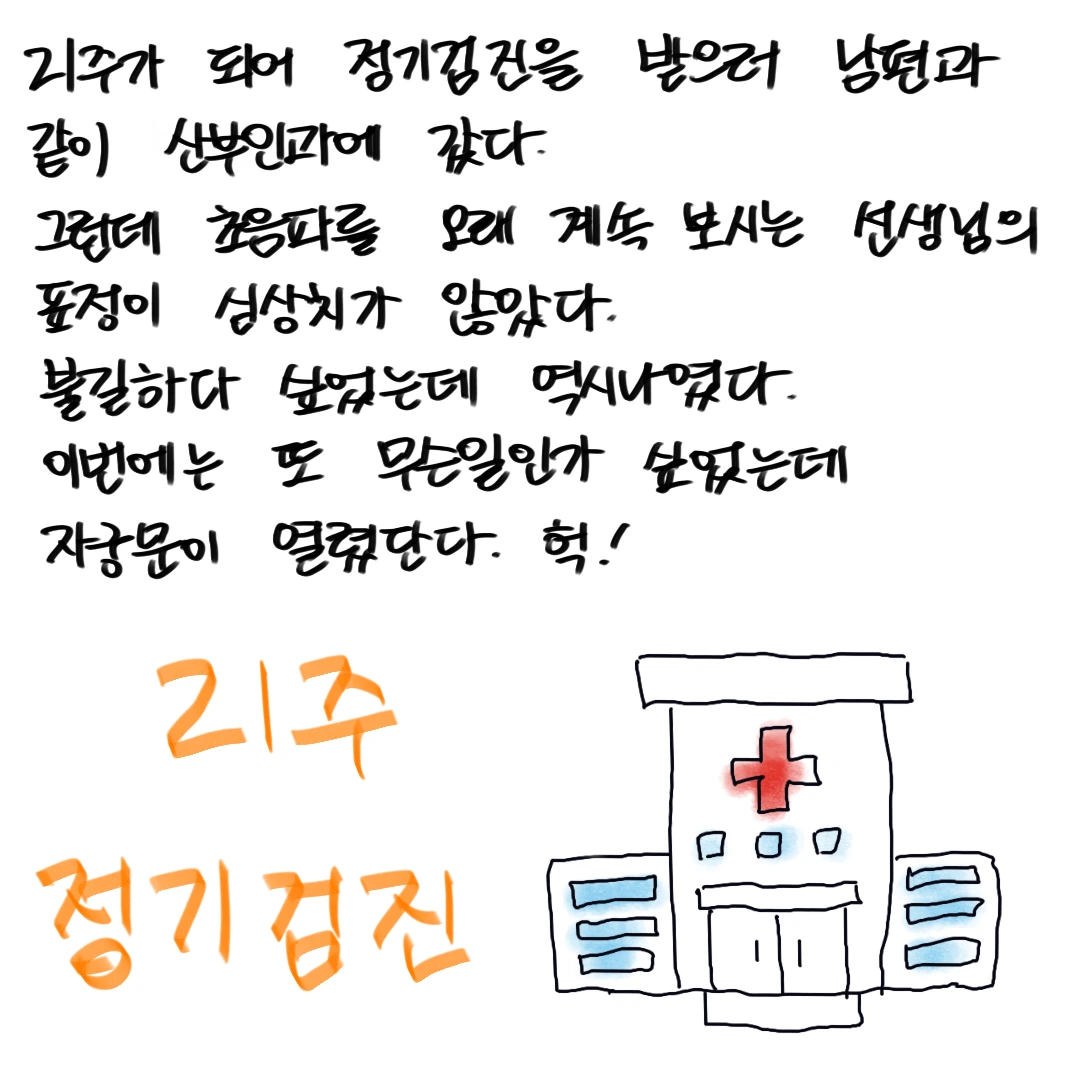 21주가 되어 정기검진을 받으러 남편과
같이 산부인과에 갔다.
그런데 초음파를 오래 계속 보시는 선생님의
표정이 심상치가 않았다.
불길하다 싶었는데 역시나였다.
이번에는 또 무슨일인가 싶었는데
자궁문이 열렸단다. 헉!
21주
정기검진